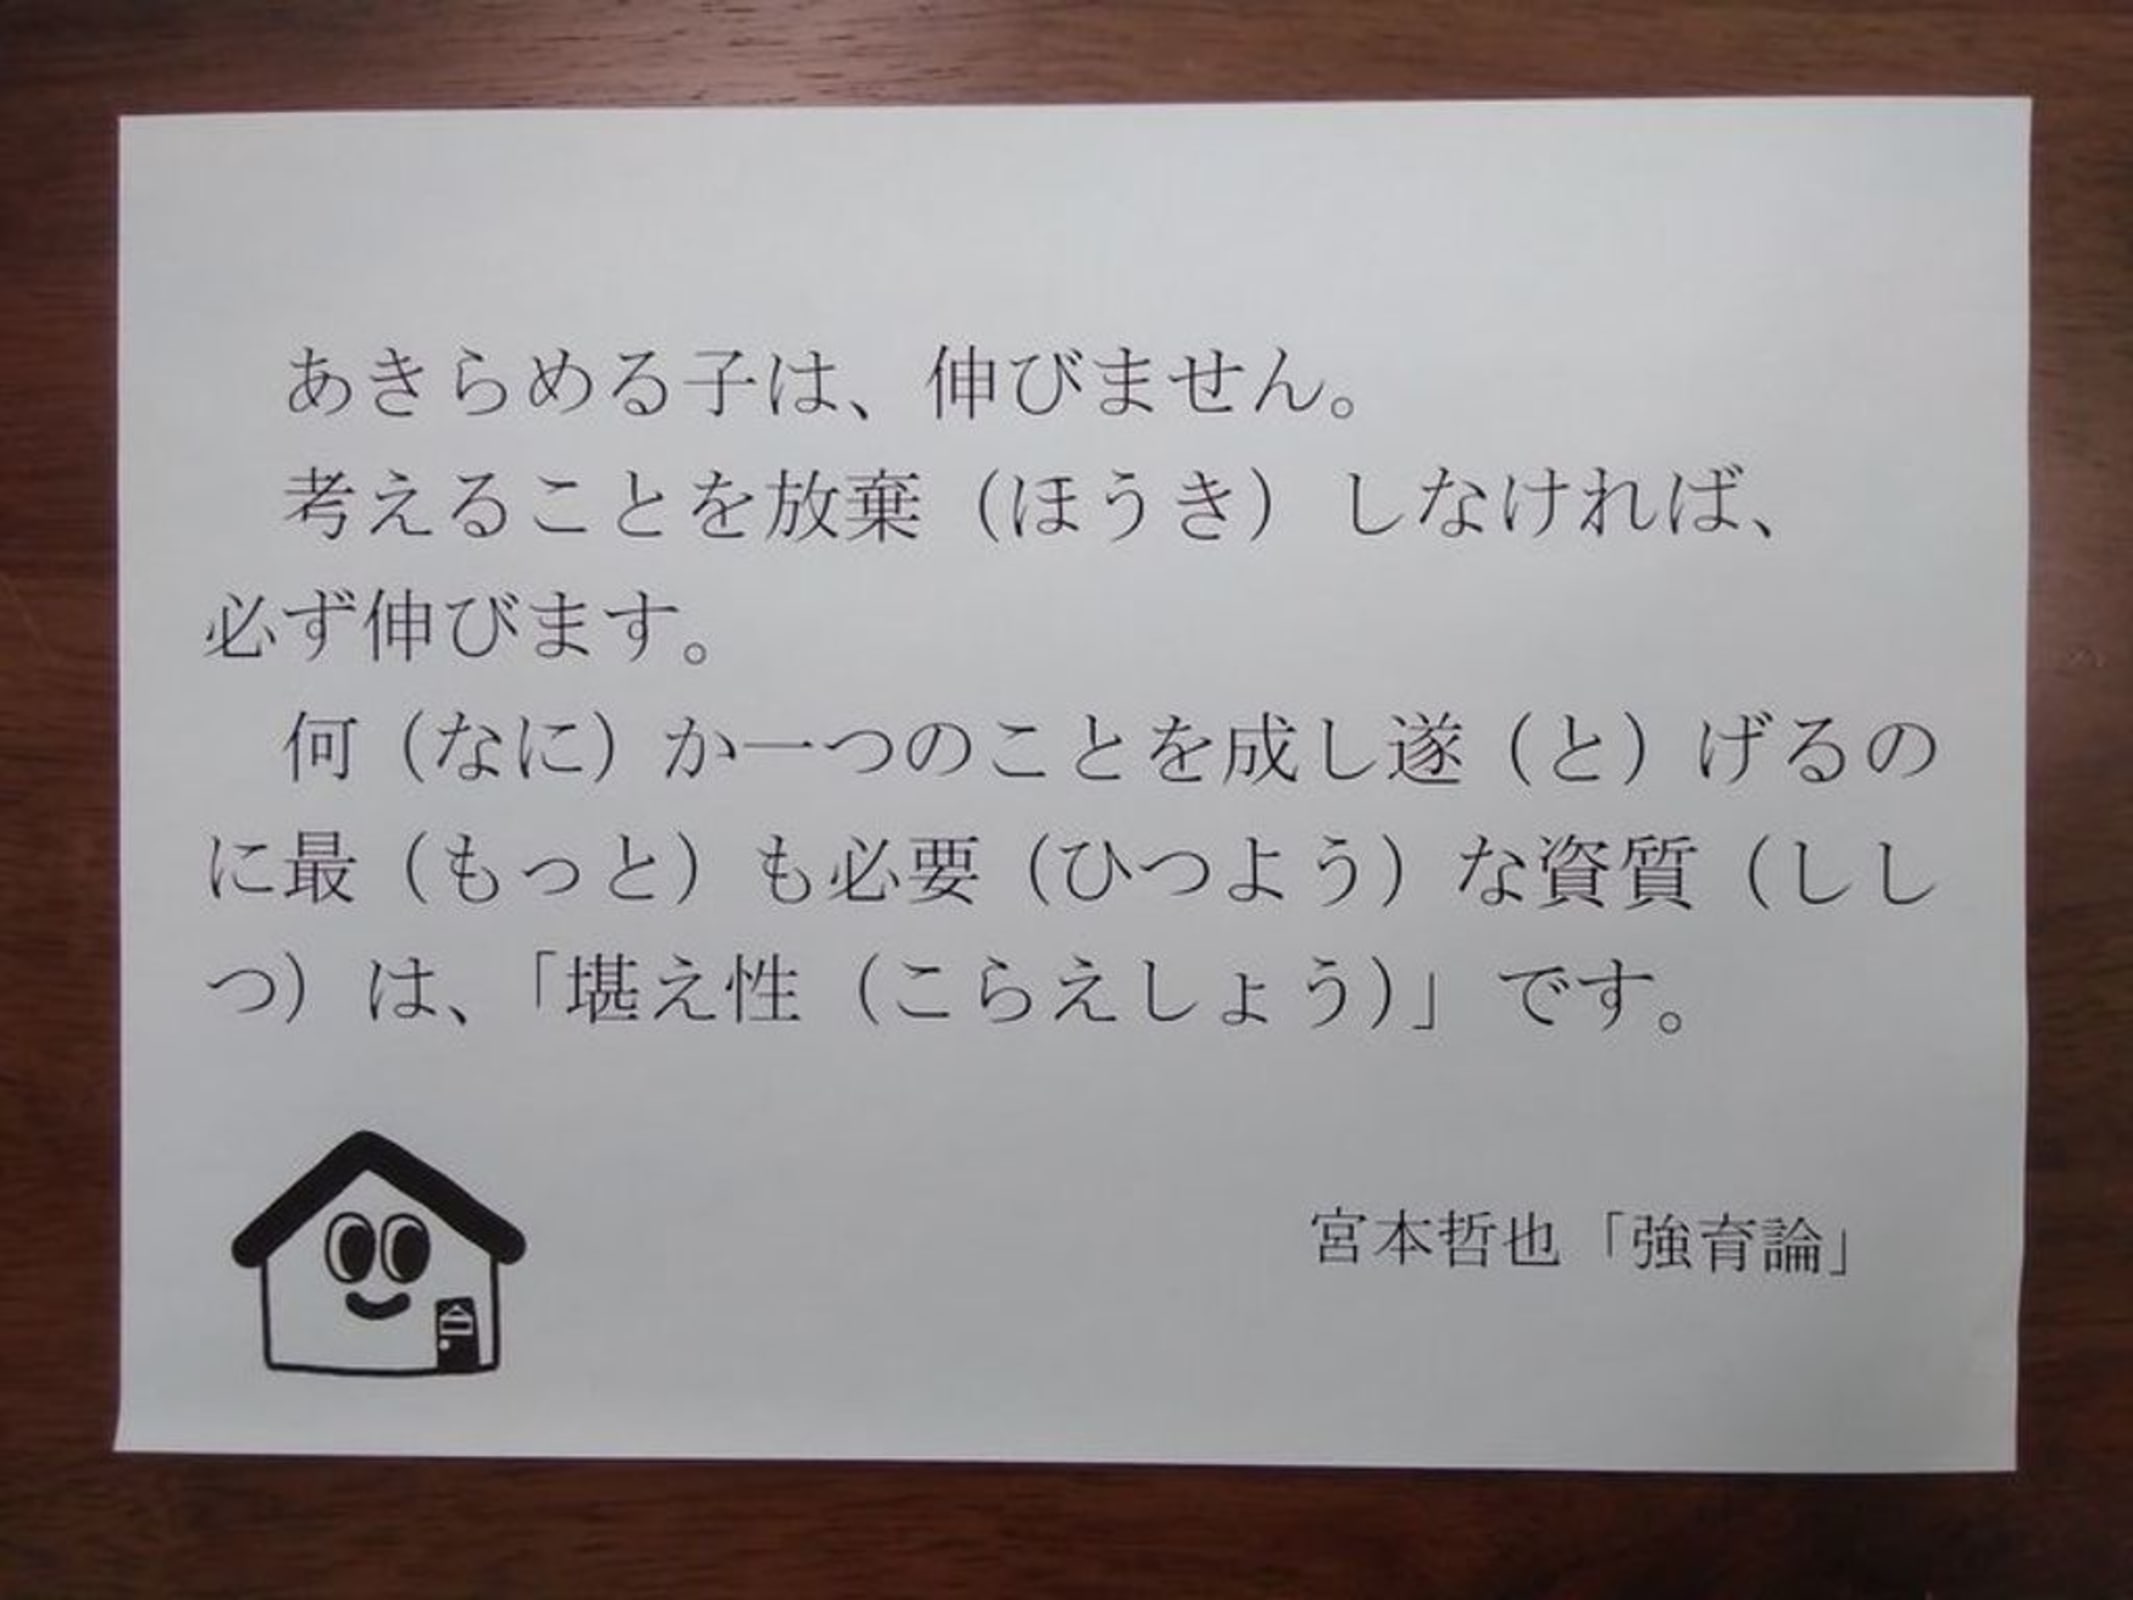 あきらめる子は、伸びません。
考えることを放棄（ほうき）しなければ、
必ず伸びます。
何（なに）か一つのことを成し遂（と）げるの
に最（もっと）も必要（ひつよう）な資質（しし
つ）は、「堪え性（こらえしょう）」です。
宮本哲也「強育論」